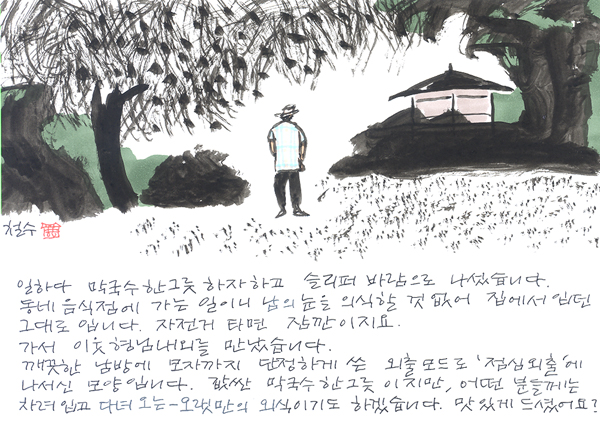 철수
일하다 막국수 한그릇 하자하고 슬리퍼 바람으로 나섰습니다.
동네 음식점에 가는 일이니 남의 눈을 의식할 것 없어 집에서 입던
그대로 입니다. 자전거 타면 잠깐이지요.
가서 이웃 형님내외를 만났습니다.
깨끗한 남방에 모자까지 단정하게 쓴 외출모드로 '점심외출'에
나서신 모양입니다. 값싼 막국수 한그릇 이지만, 어떤 분들께는
차려입고 다녀 오는-오랫만의 외식이기도 하겠습니다. 맛있게 드셨어요?